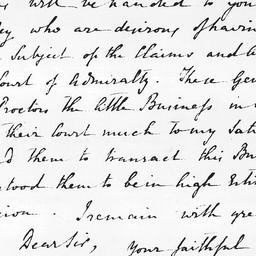 will be handed to you
who are desirous of havin
Subject of the Claims and
Court of Admiralty. These Gen
Proctors the little Business in
their Court much to my Sati
d them to transact this Bu
stood them to be in high Esti
ion. I remain with gre
Dear Sir, your faithful